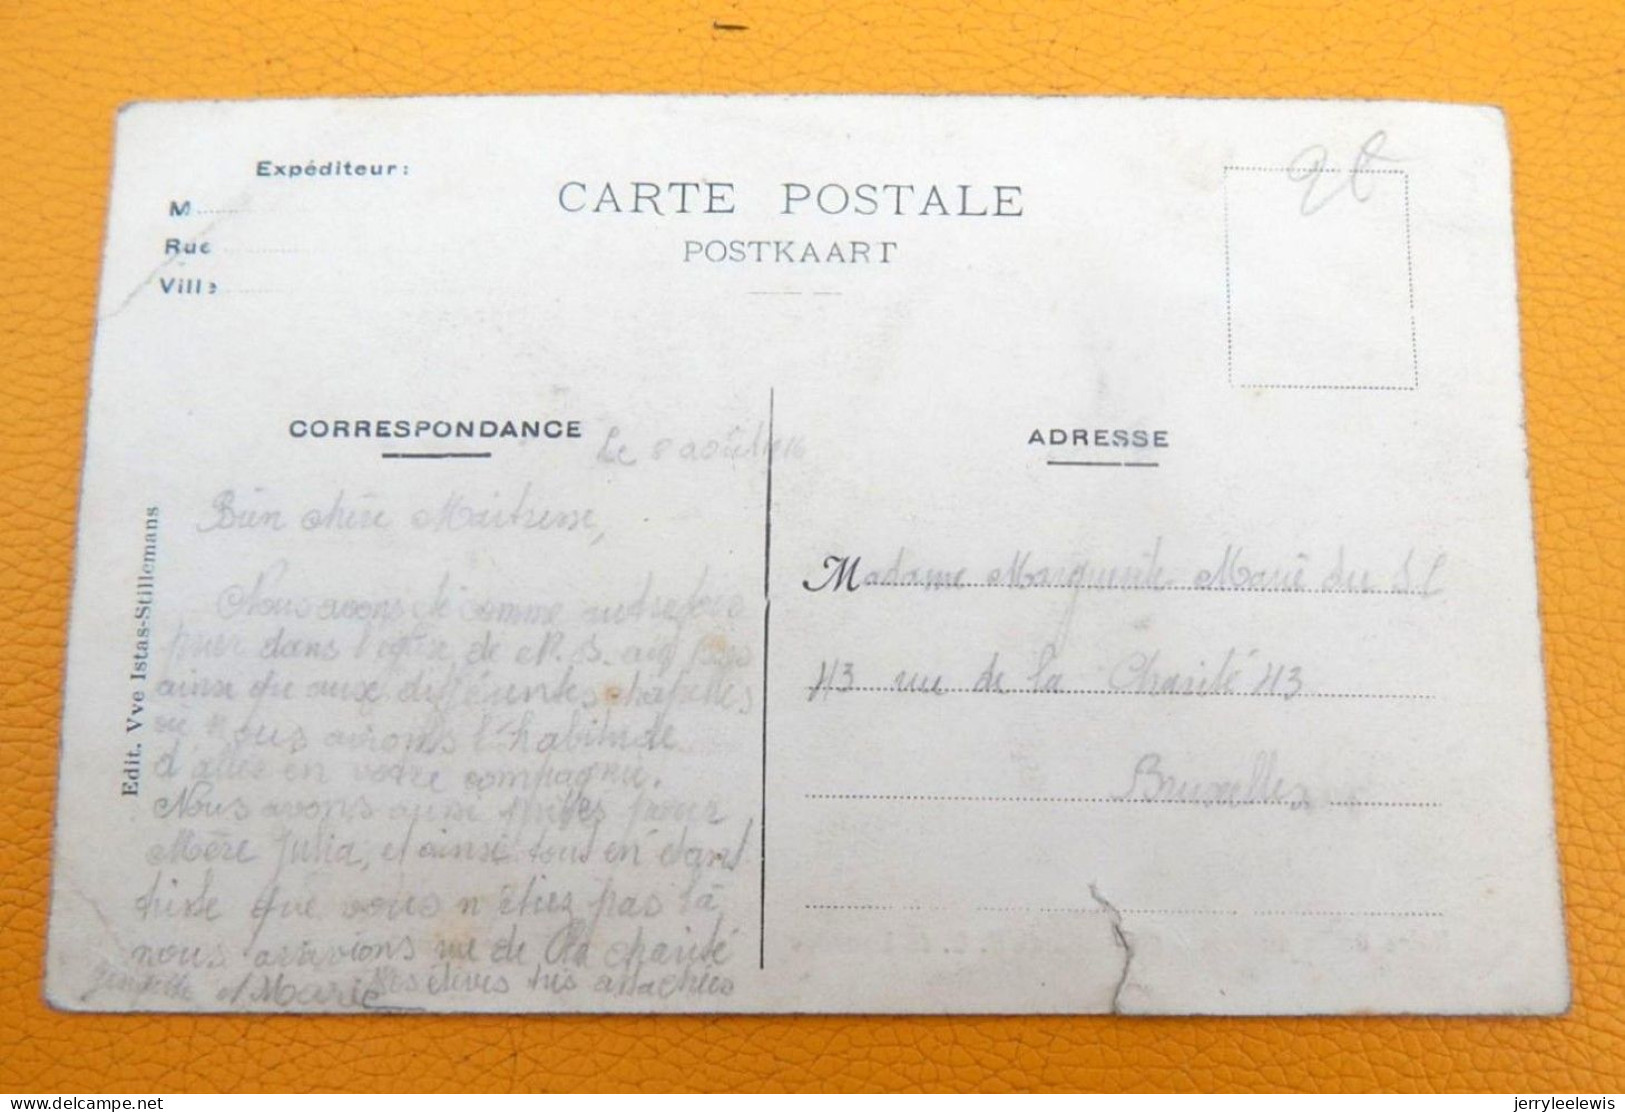 Expéditeur:
M
Rue
Ville
CARTE POSTALE
POSTKAART
CORRESPONDANCE
Le 8 août 1916
Bien chère Maitresse,
Nous avons été comme autrefois
prier dans l'église de N. D. aux
ainsi qu'aux différentes chapelles
où nous avions l'habitude
d'aller en votre compagnie.
Nous avons aussi priées pour
Mère Julia, et ainsi tout en étant
triste que vous n'étiez pas là
nous arrivions rue de la charité
Vos élèves très attachées
et Marie
Edit. Vve Istas-Stillemans
ADRESSE
Madame Marguerite Marie du S. C
43 rue de la Charité 43
Bruxelles
jerryleelewis